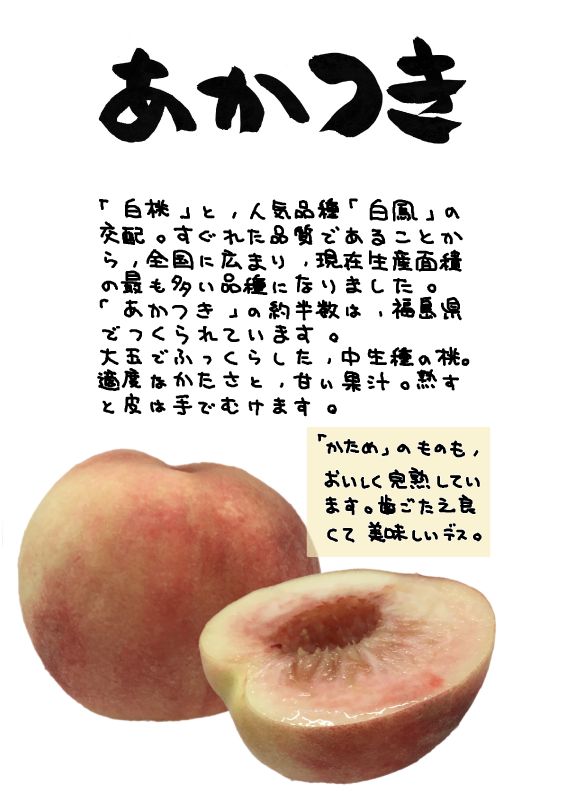 あかつき
「白桃」と，人気品種「白鳳」の
交配。すぐれた品質であることか
ら，全国に広まり，現在生産面積
の最も多い品種になりました。
「あかつき」の約半数は，福島県
でつくられています。
大玉でふっくらした，中生種の桃。
適度なかたさと，甘い果汁。熟す
と皮は手でむけます。
「かため」のものも，
おいしく完熟してい
ます。歯ごたえ良
くて美味しいデス。